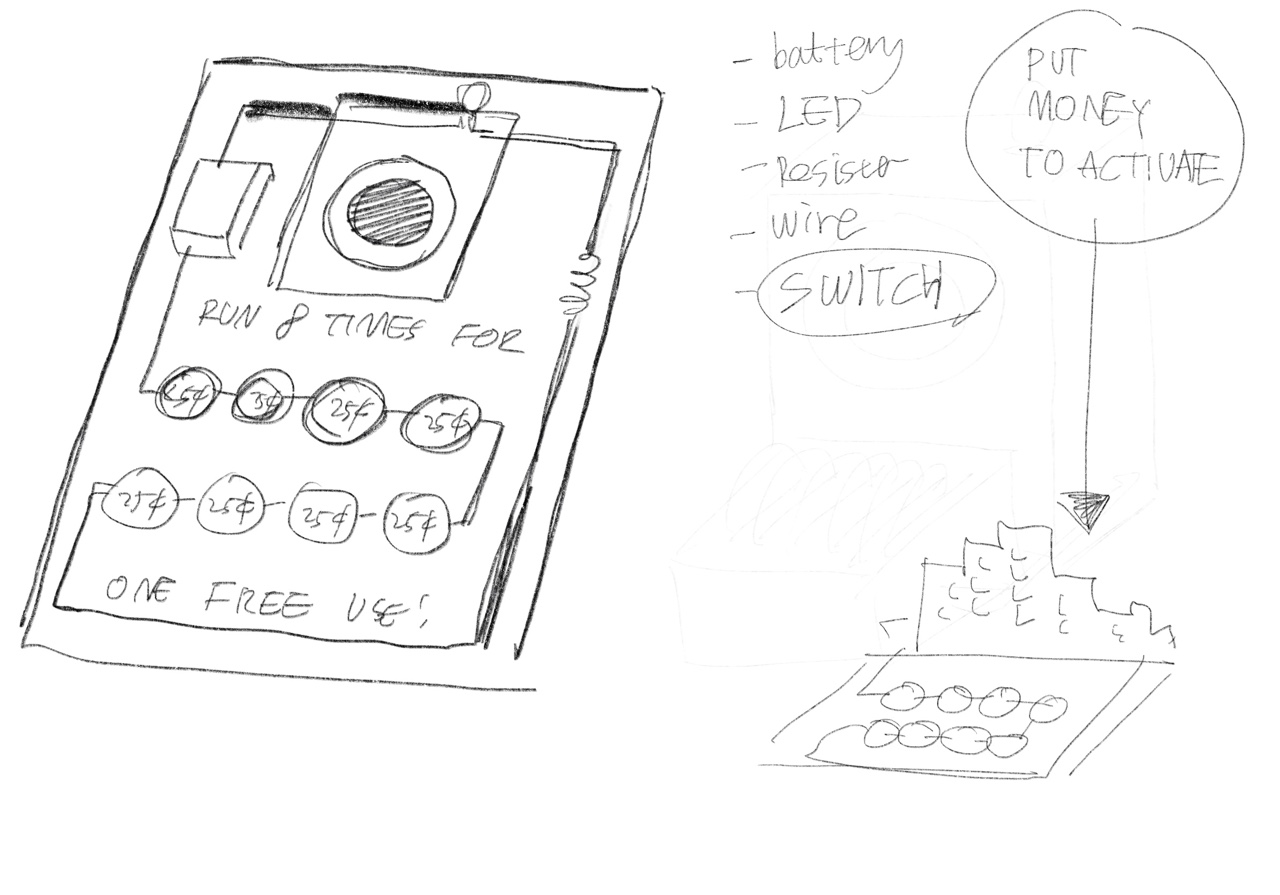 RUN 8 TIMES FOR
25¢ 25¢ 25¢ 25¢
25¢ 25¢ 25¢ 25¢
ONE FREE USE!
- battery
- LED
- resister
- wire
- SWITCH
PUT
MONEY
TO ACTIVATE